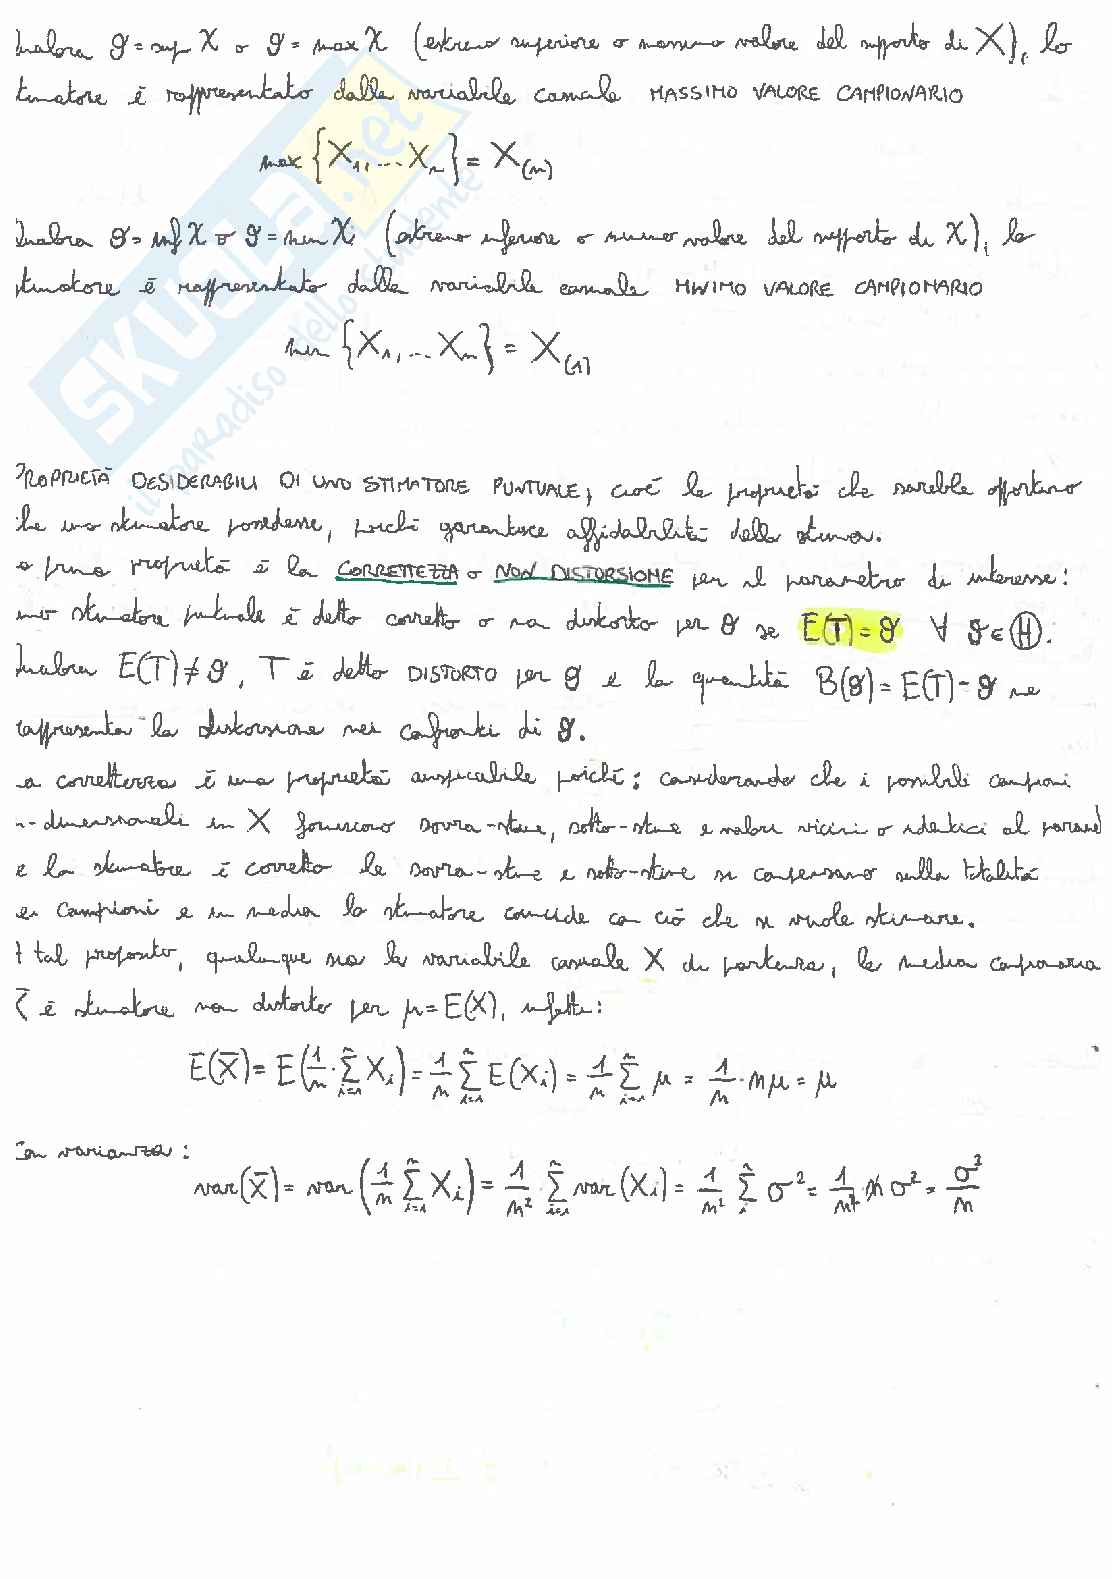 Qualora ϑ = sup X o ϑ = max X (estremo superiore o massimo valore del supporto di X), lo
stimatore è rappresentato dalla variabile casuale MASSIMO VALORE CAMPIONARIO
max {X₁, ... Xₙ} = X₍ₙ₎
Qualora ϑ = inf X o ϑ = min X (estremo inferiore o minimo valore del supporto di X), lo
stimatore è rappresentato dalla variabile casuale MINIMO VALORE CAMPIONARIO
min {X₁, ... Xₙ} = X₍₁₎
PROPRIETÀ DESIDERABILI DI UNO STIMATORE PUNTUALE, cioè le proprietà che sarebbe opportuno
che uno stimatore possedesse, poiché garantisce affidabilità della stima.
La prima proprietà è la CORRETTEZZA o NON DISTORSIONE per il parametro di interesse:
uno stimatore puntuale è detto corretto o non distorto per ϑ se E(T) = ϑ ∀ ϑ ∈ Θ.
Qualora E(T) ≠ ϑ, T è detto DISTORTO per ϑ e la quantità B(ϑ) = E(T) - ϑ ne
rappresenta la distorsione nei confronti di ϑ.
La correttezza è una proprietà auspicabile poiché: considerando che i possibili campioni
n-dimensionali in X forniscono sovra-stime, sotto-stime e valori vicini o identici al
e lo stimatore è corretto le sovra-stime e sotto-stime si compensano sulla totalità
dei campioni e in media lo stimatore coincide con ciò che si vuole stimare.
A tal proposito, qualunque sia la variabile casuale X di partenza, la media campionaria
X̄ è stimatore non distorto per μ = E(X), infatti:
E(X̄) = E(1/n · Σᵢ₌₁ⁿ Xᵢ) = 1/n Σᵢ₌₁ⁿ E(Xᵢ) = 1/n Σᵢ₌₁ⁿ μ = 1/n · nμ = μ
Con varianza:
var(X̄) = var(1/n Σᵢ₌₁ⁿ Xᵢ) = 1/n² · Σᵢ₌₁ⁿ var(Xᵢ) = 1/n² Σᵢⁿ σ² = 1/n² n σ² = σ²/n
SKUOLA.net
il paradiso dello studente